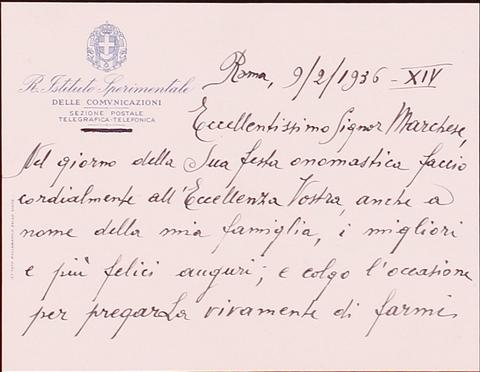 R. Istituto Sperimentale
DELLE COMVNICAZIONI
SEZIONE POSTALE
TELEGRAFICA-TELEFONICA
Roma, 9/2/1936-XIV
Eccellentissimo Signor Marchese,
Nel giorno della Sua festa onomastica faccio
cordialmente all'Eccellenza Vostra, anche a
nome della mia famiglia, i migliori
e più felici auguri; e colgo l'occasione
per pregarLa vivamente di farmi